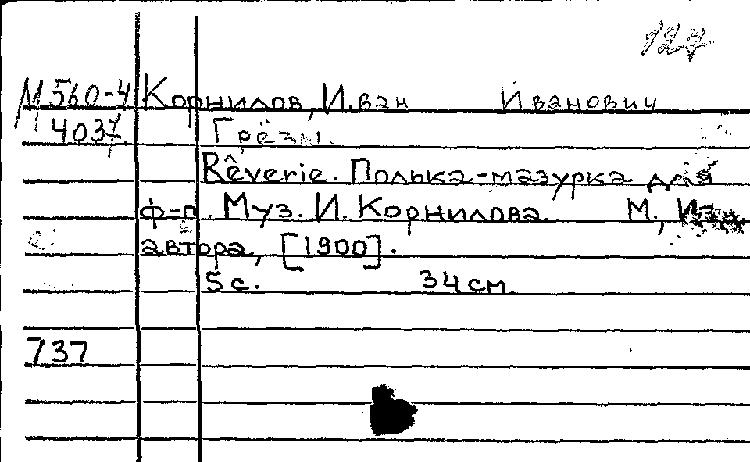 127
М 560-4 Корнилов, Иван Иванович
4037 Грёзы.
Rêverie. Полька-мазурка для
ф-п. Муз. И. Корнилова М., Изд.
автора, [1900].
5 с. 34 см
737